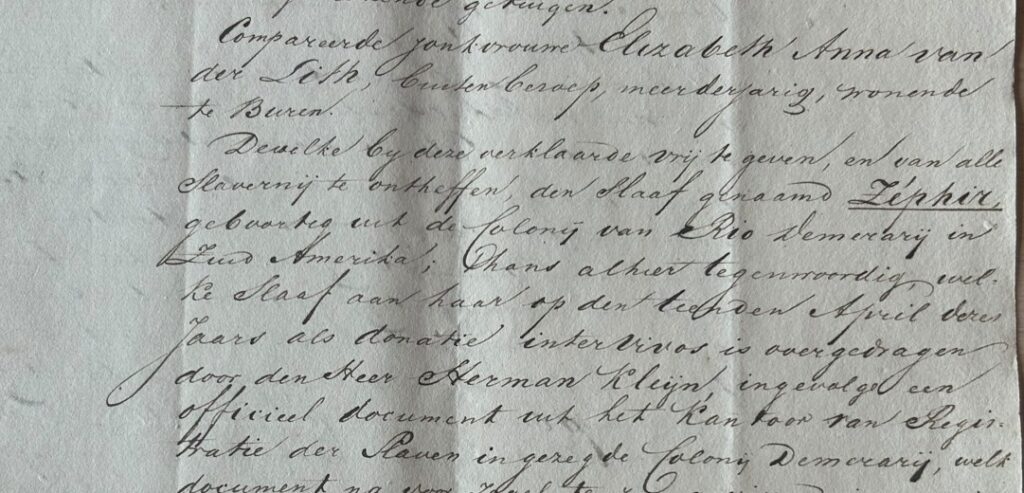 getuigen.
Compareerde Jonkvrouwe Elizabeth Anna van
der Lith, buiten beroep, meerderjarig, wonende
te Buren.
Dewelke by deze verklaarde vrij te geven, en van alle
Slavernij te ontheffen, den Slaaf genaamd Zéphir,
geboortig uit de Colonij van Rio Demerarij in
Zuid Amerika; thans alhier tegenwoordig, wel-
ke Slaaf aan haar op den tienden April dezes
Jaars als donatie inter vivos is overgedragen
door den Heer Herman Kleÿn, ingevolge een
officieel document uit het Kantoor van Regis-
tratie der Slaven in gezegde Colonij Demerarij, welk
document na voor